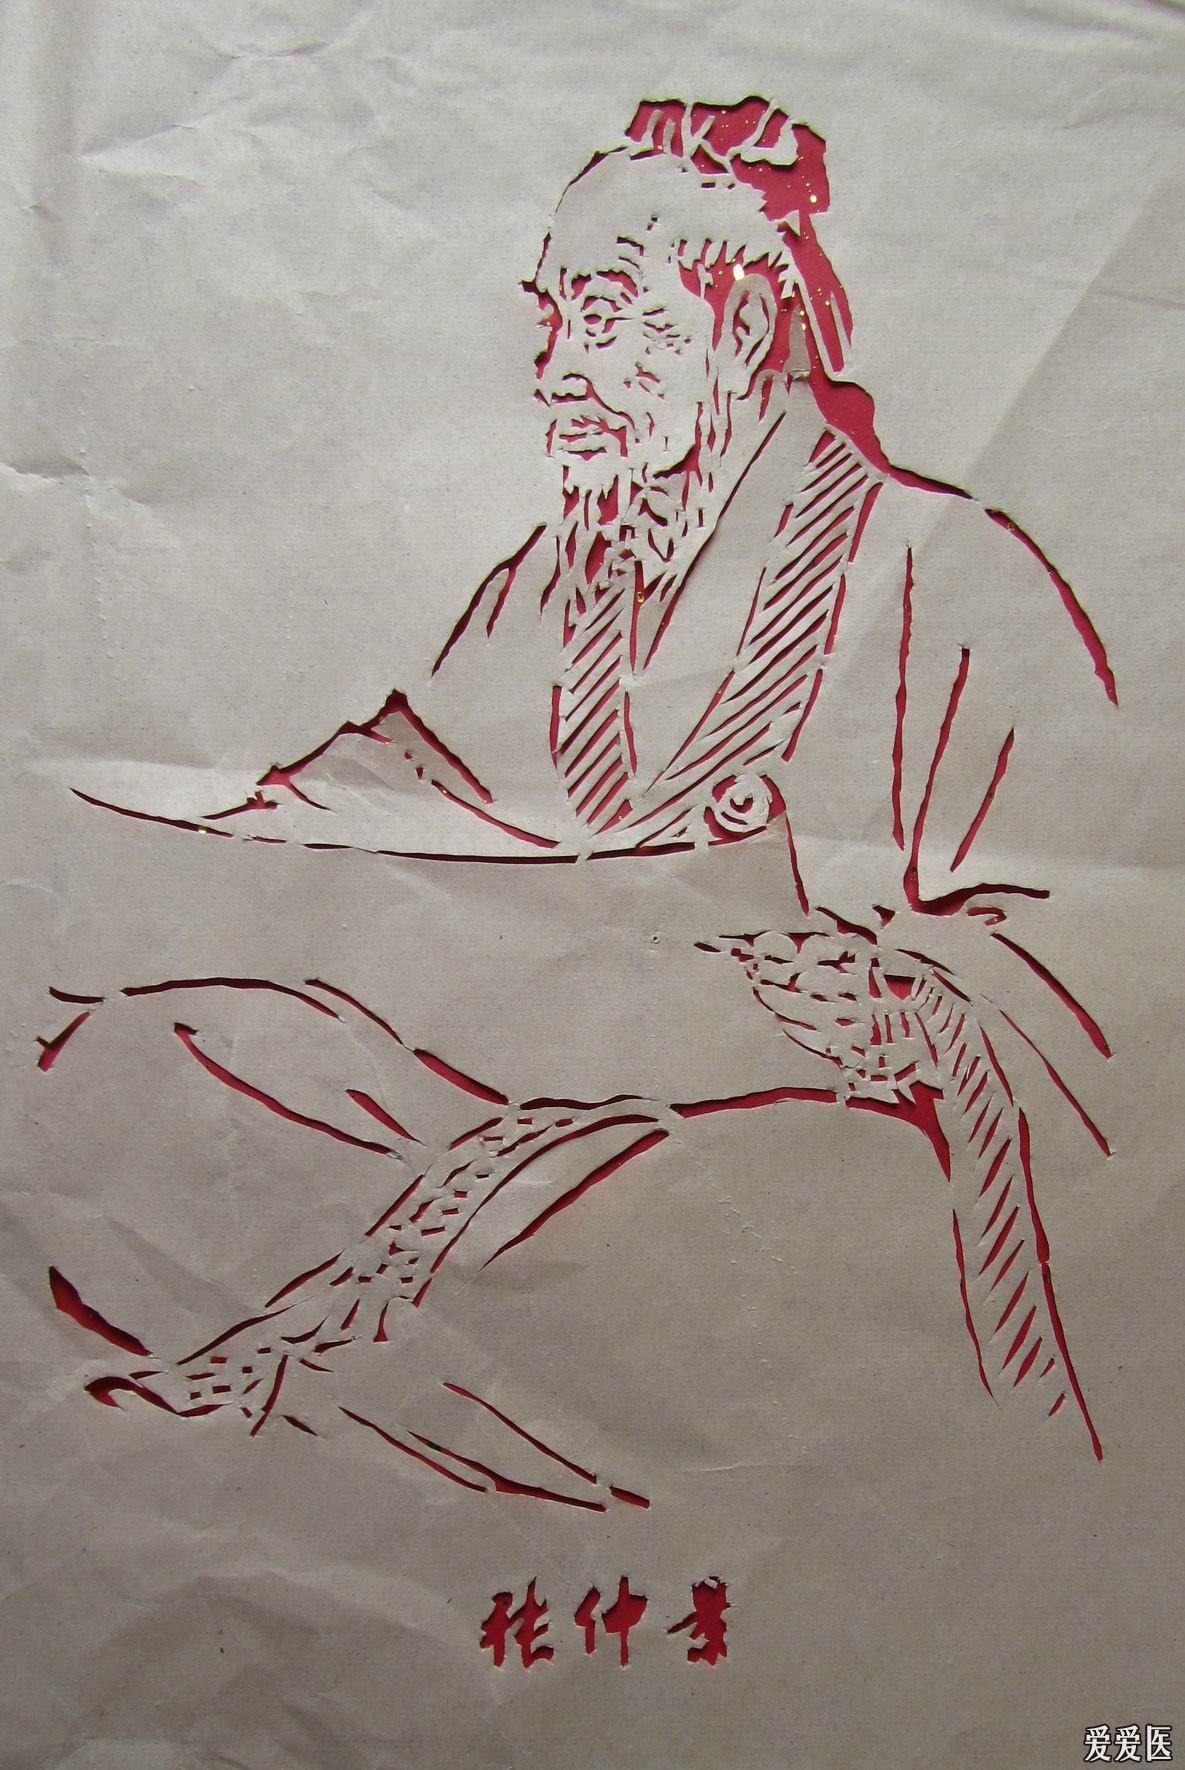 张仲景
爱爱医